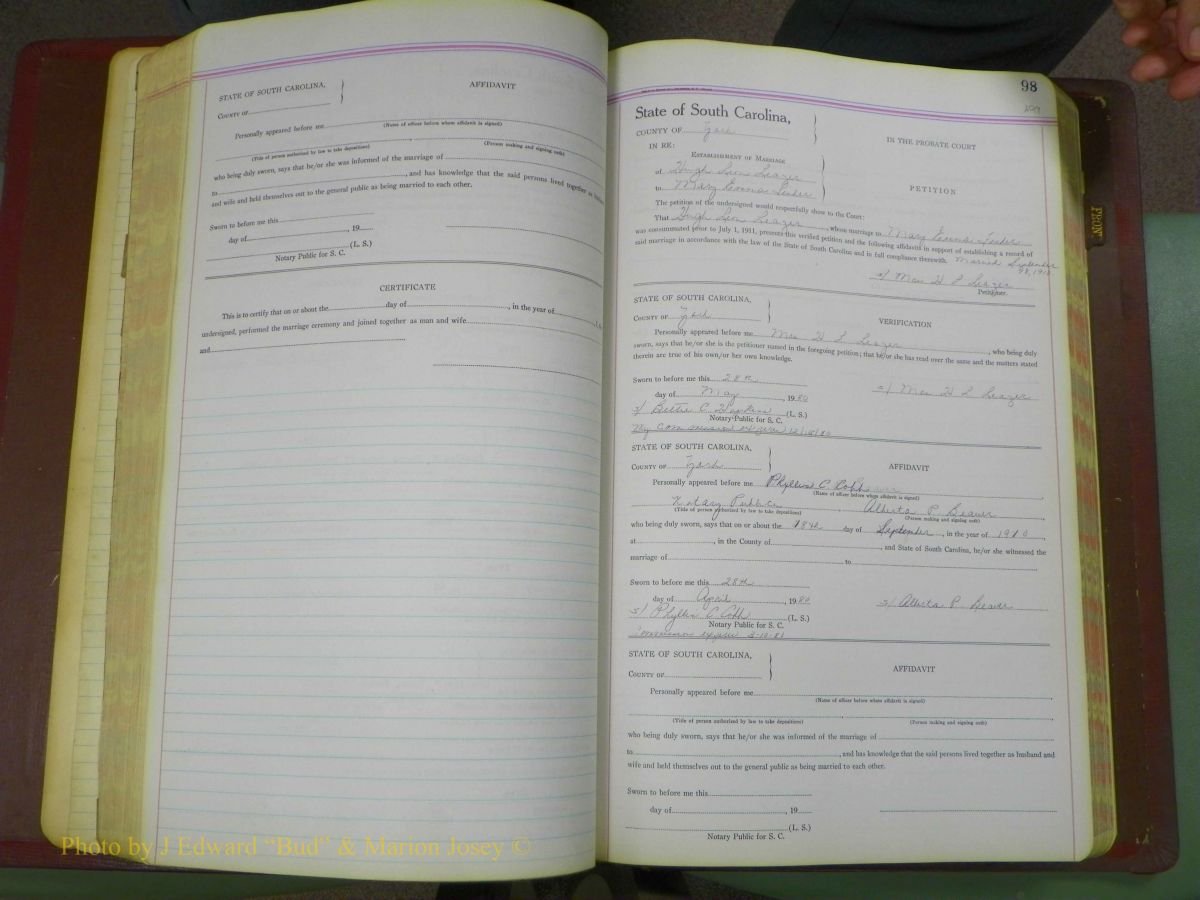 STATE OF SOUTH CAROLINA,
COUNTY OF
AFFIDAVIT
Personally appeared before me
(Name of officer before whom affidavit is signed)
(Title of person authorized by law to take depositions)
(Person making and signing oath)
who being duly sworn, says that he/or she was informed of the marriage of
to , and has knowledge that the said persons lived together as husband
and wife and held themselves out to the general public as being married to each other.
Sworn to before me this
day of , 19
(L. S.)
Notary Public for S. C.
CERTIFICATE
This is to certify that on or about the day of , in the year of
undersigned, performed the marriage ceremony and joined together as man and wife
and
98
State of South Carolina,
COUNTY OF York
IN THE PROBATE COURT
IN RE:
ESTABLISHMENT OF MARRIAGE
of Hugh Leon Leazer
to Mary Emma
PETITION
The petition of the undersigned would respectfully show to the Court:
That Hugh Leon Leazer , whose marriage to Mary Emma
was consummated prior to July 1, 1911, presents this verified petition and the following affidavit in support of establishing a record of
said marriage in accordance with the law of the State of South Carolina and in full compliance therewith. Married September
s/ Mrs H L Leazer
Petitioner.
STATE OF SOUTH CAROLINA,
COUNTY OF York
VERIFICATION
Personally appeared before me Mrs H L Leazer , who being duly
sworn, says that he/or she is the petitioner named in the foregoing petition; that he/or she has read over the same and the matters stated
therein are true of his own/or her own knowledge.
Sworn to before me this 28th
day of May , 1980
s/ Mrs H L Leazer
s/ Bettie C. (L. S.)
Notary Public for S. C.
My Commission expires
STATE OF SOUTH CAROLINA,
COUNTY OF York
AFFIDAVIT
Personally appeared before me Phyllis C Cobb
(Name of officer before whom affidavit is signed)
Notary Public Alberta P. Beaver
(Title of person authorized by law to take depositions)
(Person making and signing oath)
who being duly sworn, says that on or about the 18th day of September , in the year of 1910
at , in the County of , and State of South Carolina, he/or she witnessed the
marriage of to
Sworn to before me this 28th
day of April , 1980
s/ Alberta P. Beaver
s/ Phyllis C Cobb (L. S.)
Notary Public for S. C.
Commission expires
STATE OF SOUTH CAROLINA,
COUNTY OF
AFFIDAVIT
Personally appeared before me
(Name of officer before whom affidavit is signed)
(Title of person authorized by law to take depositions)
(Person making and signing oath)
who being duly sworn, says that he/or she was informed of the marriage of
to , and has knowledge that the said persons lived together as husband and
wife and held themselves out to the general public as being married to each other.
Sworn to before me this
day of , 19
(L. S.)
Notary Public for S. C.
FRONT
Photo by J Edward "Bud" & Marion Josey ©